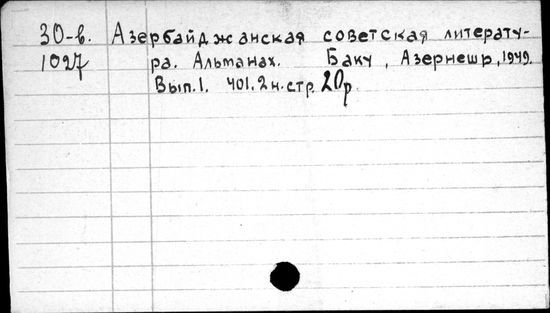 30-в. Азербайджанская советская литерату-
1027 ра. Альманах. Баку, Азернешр, 1949.
Вып.1. 401.2н.стр. 20р.